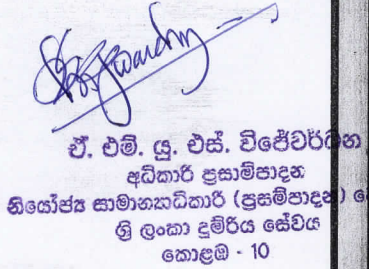 ඒ. එම්. යු. එස්. විජේවර්ධන
අධිකාරි ප්‍රසාම්පාදන
නියෝජ්‍ය සාමාන්‍යාධිකාරි (ප්‍රසම්පාදන)
ශ්‍රී ලංකා දුම්රිය සේවය
කොළඹ - 10